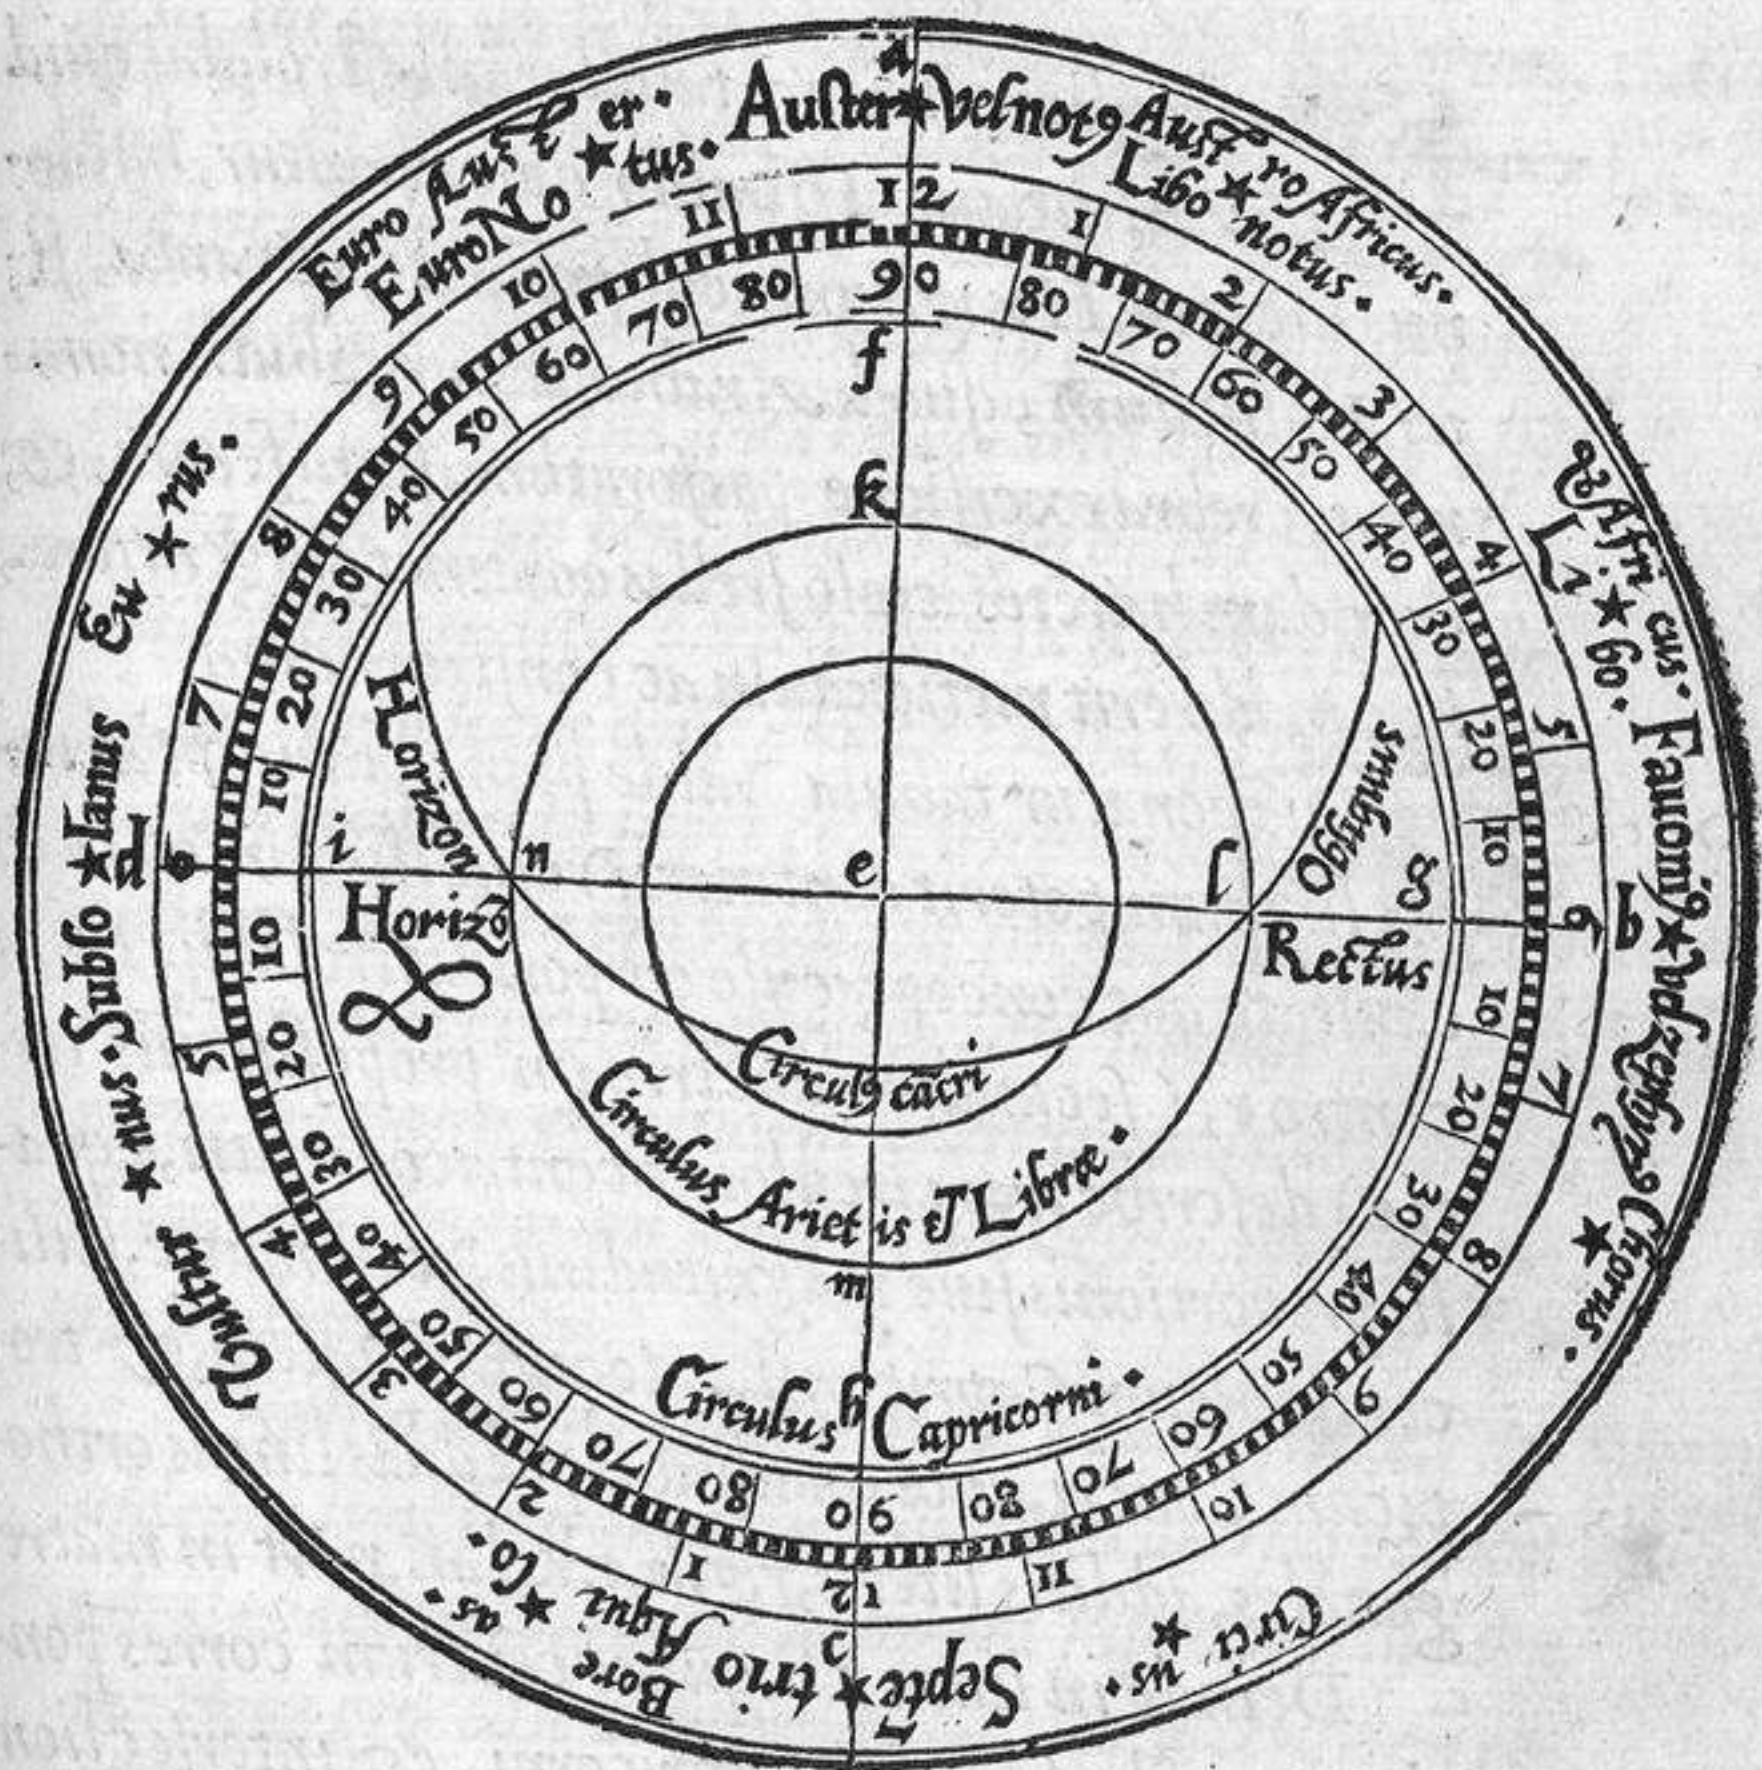 a
Auster vel not9
Austro Africus.
Libo notus.
& Afri cus.
Li bo.
Fauoni9 vel zephyr9
b
Chorus.
Circi us.
Septē trio
c
Aqui lo.
Bore as.
Vultur nus.
Subso lanus
d
Eu rus.
Euro Aust er.
Euro No tus.
12
1
2
3
4
5
6
7
8
9
10
11
12
1
2
3
4
5
6
7
8
9
10
11
90
80
70
60
50
40
30
20
10
10
20
30
40
50
60
70
80
90
80
70
60
50
40
30
20
10
10
20
30
40
50
60
70
80
f
k
Horizon
Obliquus
i
n
e
l
g
Horizō
Rectus
Circul9 cācri
Circulus Ariet is & Libræ.
m
Circulus Capricorni.
h